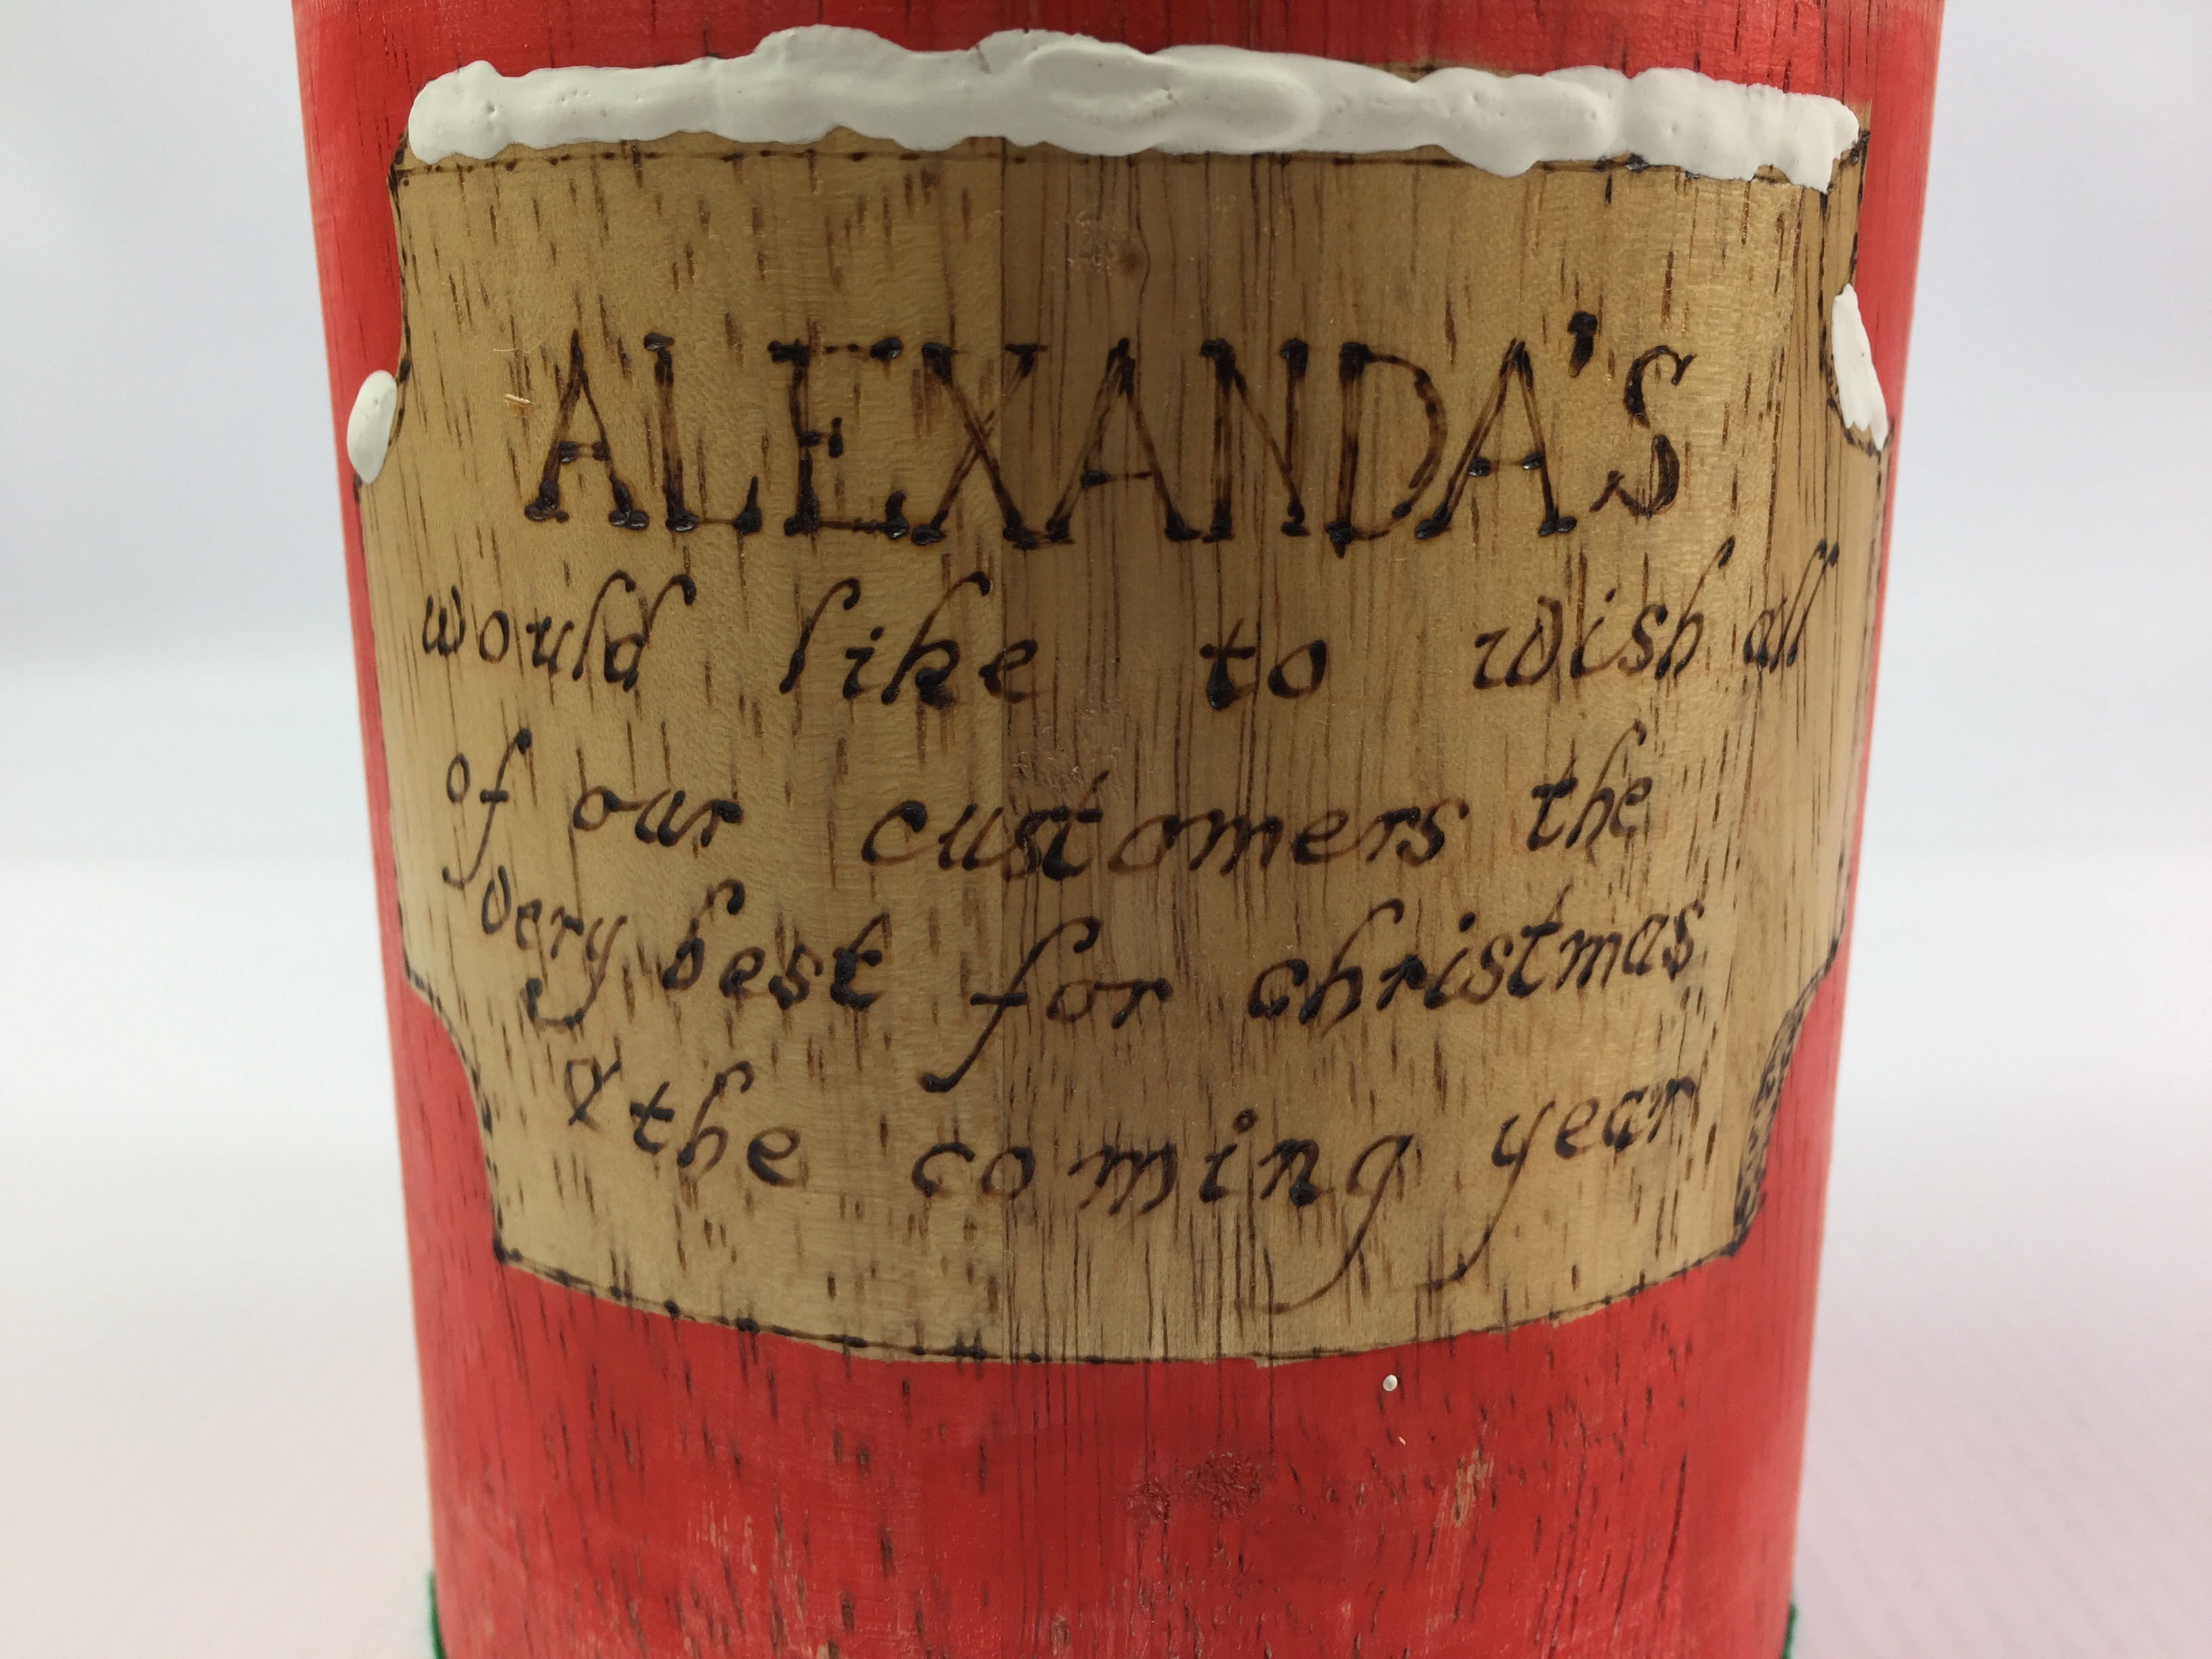 ALEXANDA'S
would like to wish all
of our customers the
very best for christmas
& the coming year